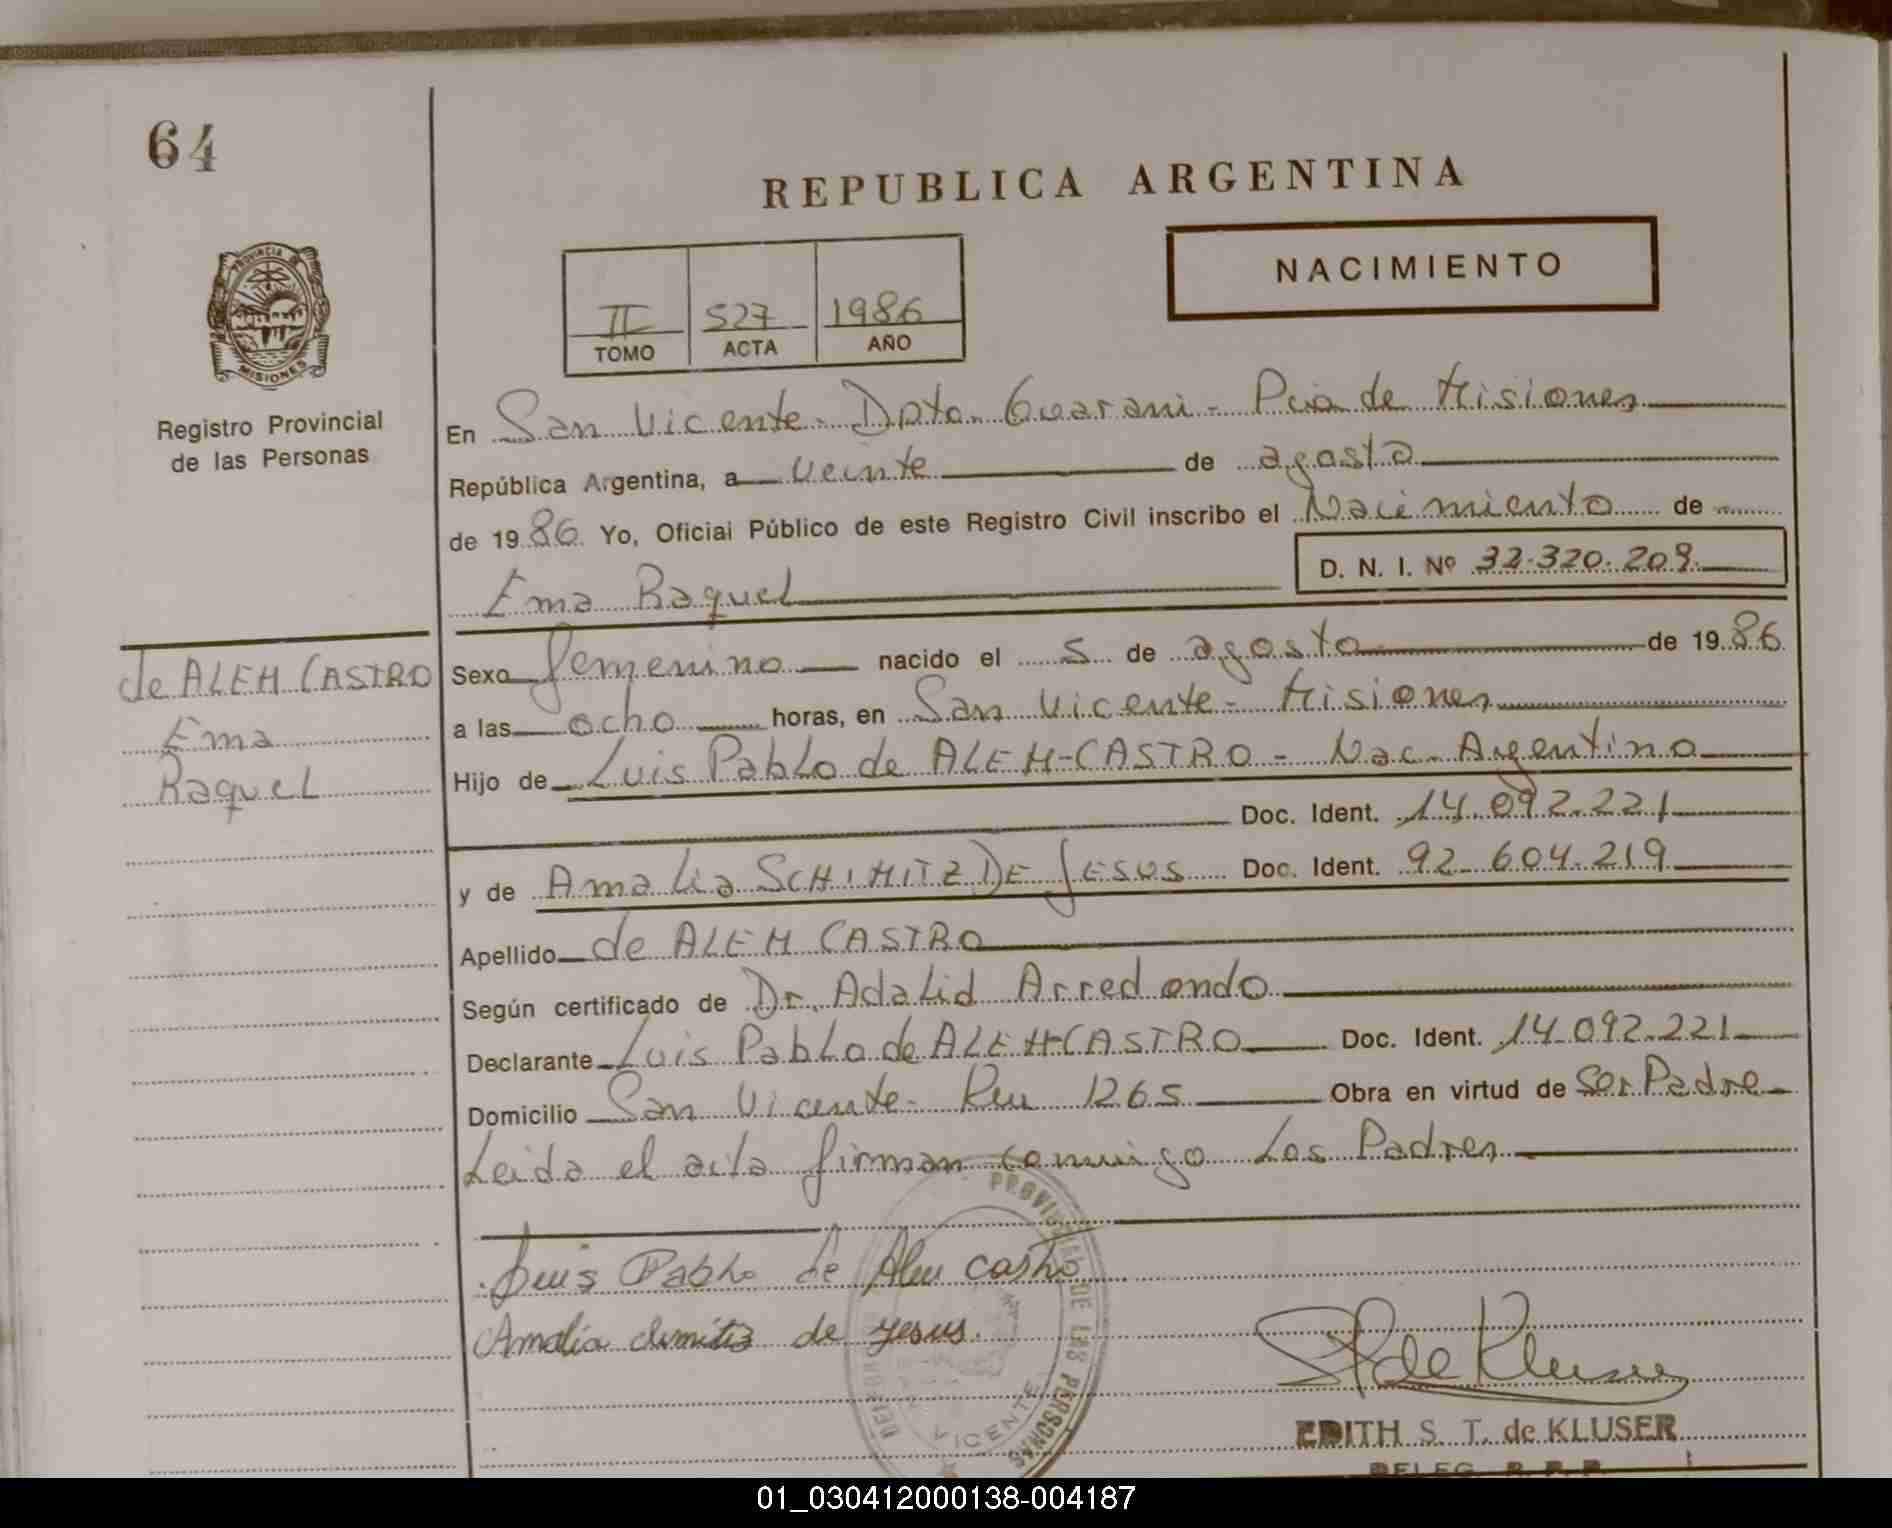 64
REPUBLICA ARGENTINA
NACIMIENTO
PROVINCIA DE
MISIONES
II 527 1986
TOMO ACTA AÑO
Registro Provincial
de las Personas
En San Vicente - Dpto. Guarani - Pcia de Misiones
República Argentina, a veinte de agosto
de 1986 Yo, Oficial Público de este Registro Civil inscribo el Nacimiento de
D. N. I. Nº 32.320.209
Ema Raquel
de ALEM CASTRO
Ema
Raquel
Sexo femenino nacido el 5 de agosto de 1986
a las ocho horas, en San Vicente - Misiones
Hijo de Luis Pablo de ALEM-CASTRO - Nac. Argentino
Doc. Ident. 14.092.221
y de Amalia SCHIMITZ DE JESUS Doc. Ident. 92.604.219
Apellido de ALEM CASTRO
Según certificado de Dr. Adalid Arredondo
Declarante Luis Pablo de ALEM-CASTRO Doc. Ident. 14.092.221
Domicilio San Vicente - 1265 Obra en virtud de Ser Padre
Leida el acta firman conmigo Los Padres
Luis Pablo de Alem Castro
Amalia de Jesus.
PROVINCIAL DE LAS PERSONAS
VICENTE
EDITH S. T. de KLUSER
DELEG. R. P. P.
01_030412000138-004187